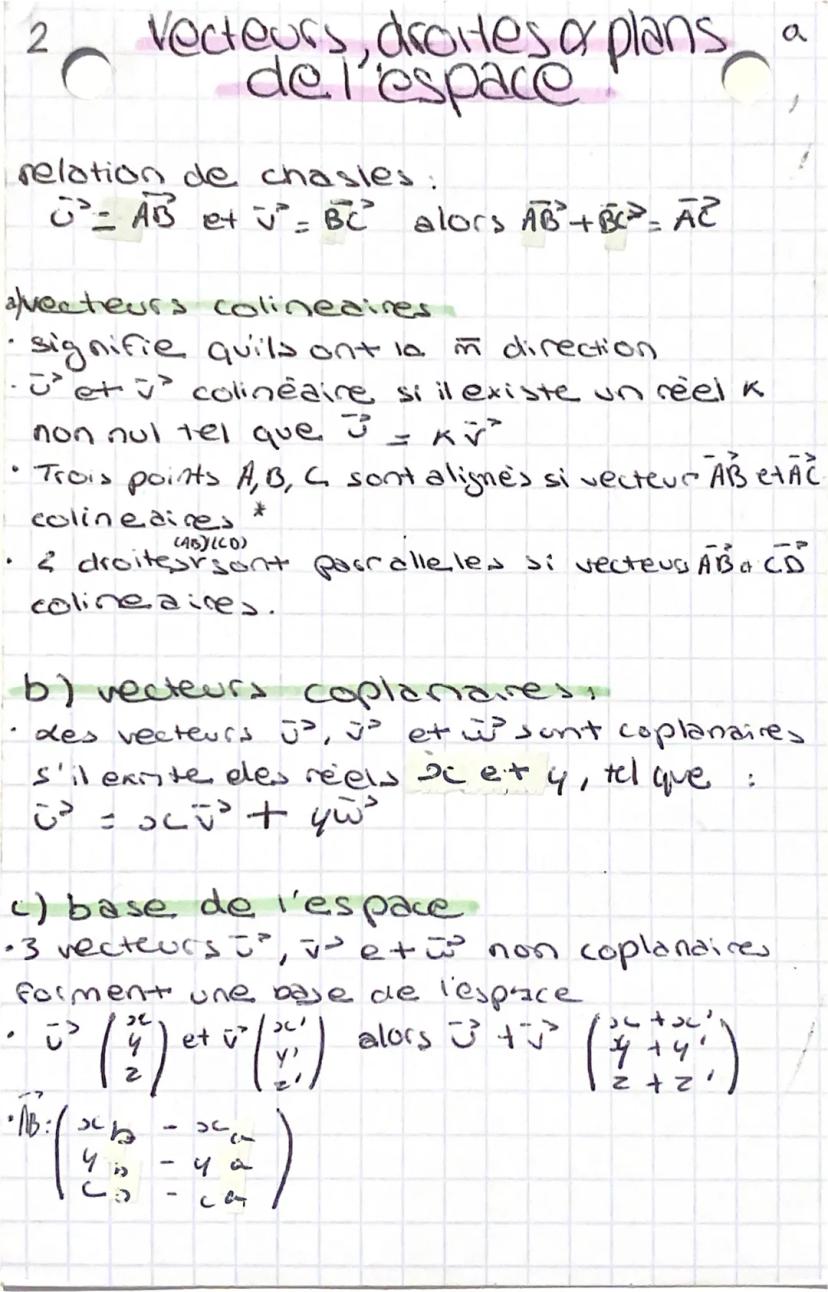 2 vecteurs, droites & plans a
de l'espace
relation de chasles :
u⃗ = AB⃗ et v⃗ = BC⃗ alors AB⃗ + BC⃗ = AC⃗
a) vecteurs colineaires
· signifie qu'ils ont la m̄ direction
· u⃗ et v⃗ colinéaire si il existe un réel k
non nul tel que u⃗ = k v⃗
· Trois points A, B, C sont alignés si vecteur AB⃗ et AC⃗
colineaires *
(AB)(CD)
· 2 droites sont paralleles si vecteurs AB⃗ a CD⃗
colineaires.
b) vecteurs coplanaires :
· des vecteurs u⃗, v⃗ et w⃗ sont coplanaires
s'il existe des réels x et y, tel que :
u⃗ = xv⃗ + yw⃗
c) base de l'espace
· 3 vecteurs u⃗, v⃗ et w⃗ non coplanaires
forment une base de l'espace
· u⃗ (x y z) et v⃗ (x' y' z') alors u⃗ + v⃗ (x + x' y + y' z + z')
· AB⃗ : (x b - x a
y b - y a
c b - c a)